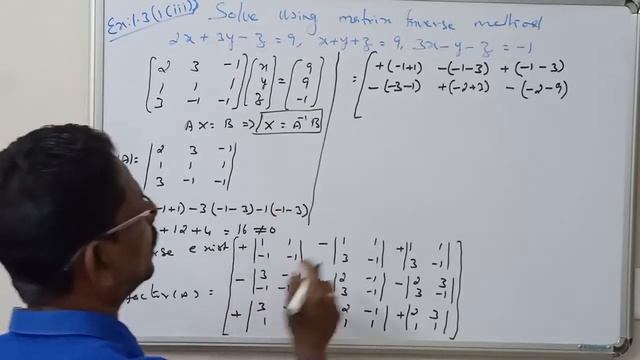 Ex:1.3(1(iii)) Solve using matrix inverse method
2x + 3y - z = 9, x+y+z = 9, 3x-y-z = -1
[2 3 -1] [x] = [9]
[1 1 1] [y] [9]
[3 -1 -1] [z] [-1]
AX = B => X = A⁻¹B
(A) = |2 3 -1|
|1 1 1|
|3 -1 -1|
-1+1) -3(-1-3) -1(-1-3)
+ 12 + 4 = 16 ≠ 0
exist
= [+|1 1| -|1 1| +|1 1|
|-1 -1| |3 -1| |3 -1|
-|3 |2 -1| -|2 3|
|-1 -1| |3 -1| |3 -1|
+|3 2 -1| +|2 3|
|1 |1 1| |1 1|]
= [+(-1+1) -(-1-3) +(-1-3)
-(-3-1) +(-2+3) -(-2-9)